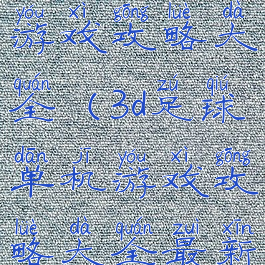 yóu xì gōng lüè dà
游戏攻略大
quán zú qiú
全(3d足球
dān jī yóu xì gōng
单机游戏攻
lüè dà quán zuì xīn
略大全最新